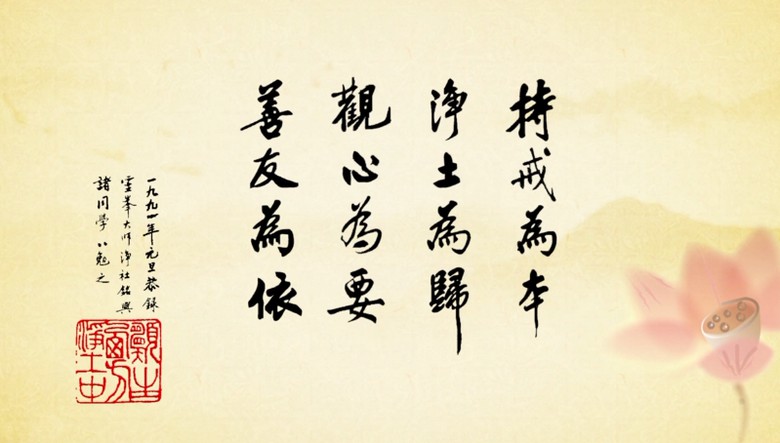 持戒為本
淨土為歸
觀心為要
善友為依
一九九一年元旦恭錄
靈峯大師淨社銘與
諸同學以勉之
願生西方淨土中